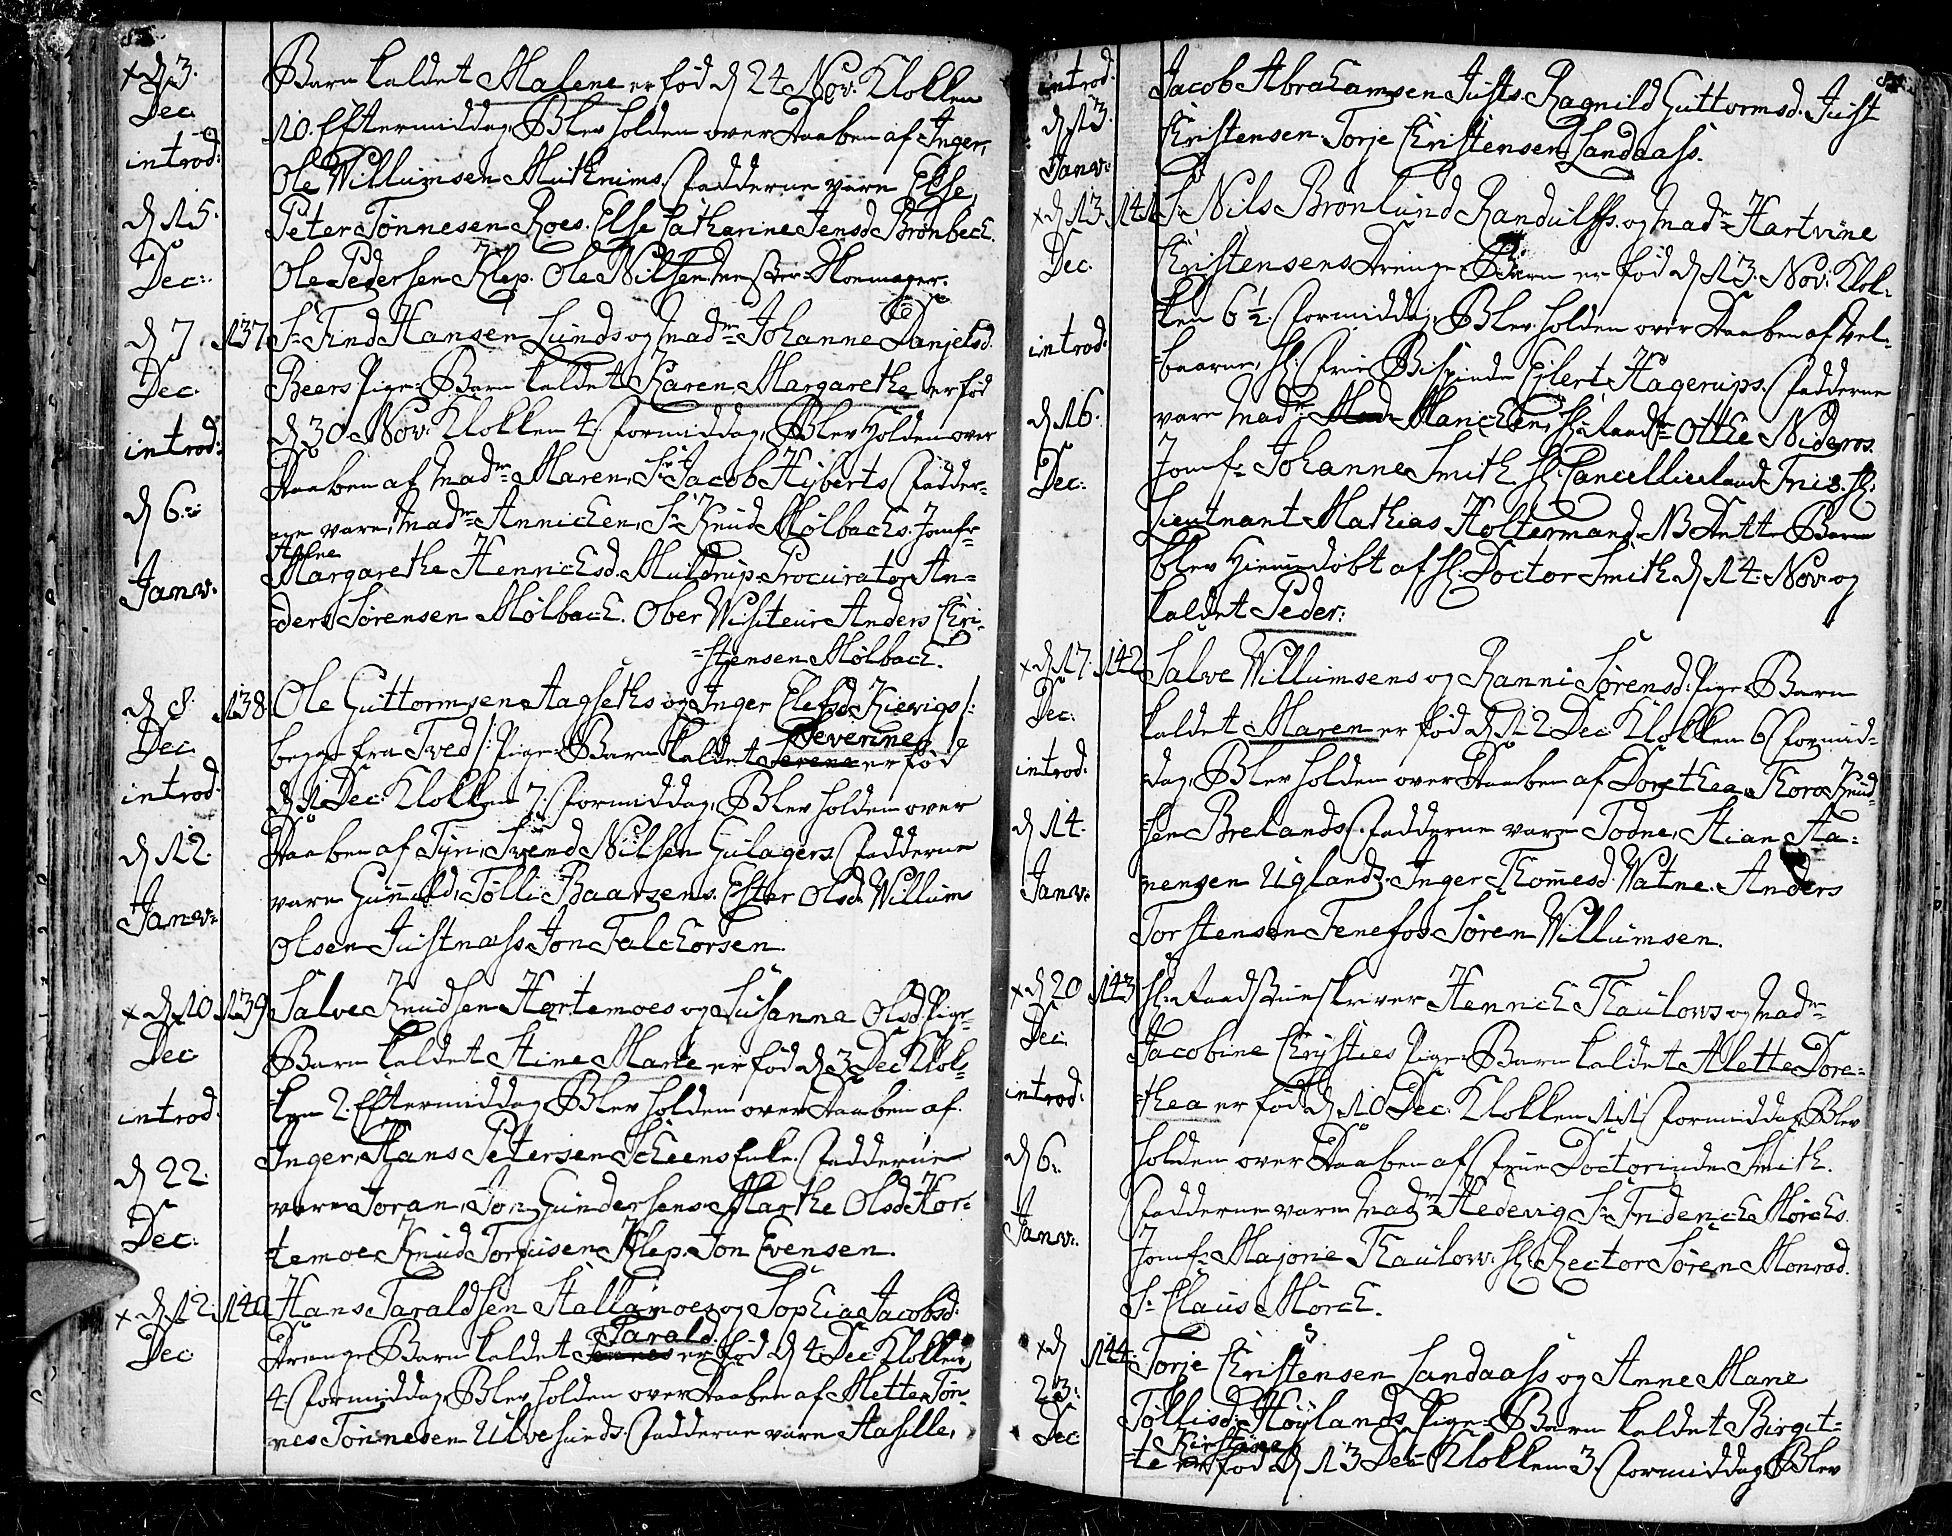 x d 3.
Dec
introd:
d 15.
Dec:
Barn kaldet Malene er fød d 24 Nov: Klokken
10. Eftermiddag, Blev holden over Daaben af Inger,
Ole Willumsen Fadderne vare Else,
Peter Tønnesen Roes. Else Catharine Jensd. Brønbeck.
Ole Pedersen Klep. Ole Nilsen
d 7 137
Dec.
introd:
d 6
Janv:
Sr Find Hansen Lunds og Madm Johanne Danjelsd.
Beers Pige-Barn kaldet Karen Margarethe er fød
d 30 Nov: Klokken 4. Formiddag, Blev Holden over
Daaben af Madm Maren, Sr Jacob Hyberts Fadder-
ne vare, Madm Annichen, Sr Knud Mølbachs. Jomfr
Margarethe Henrichsd. Muldrup. Procurator An-
ders Sørensen Mølbach. Ober Visiteur Anders Chri-
=stensen Mølbach.
d 8. 138
Dec.
introd.
d 12.
Janv:
Ole Guttormsen Aagseths og Inger Elefsd. Kievigs /:
begge fra Tved :/ Pige-Barn kaldet Severine er fød
d 1 Dec: Klokken 7. Formiddag, Blev holden over
Daaben af Siri, Svend Nilsen Gulagers Fadderne
vare Gunild, Tølli Baarsens. Ester Olsd. Willum
Olsen Justnæss Jon Falchorsen.
x d 10 139
Dec
introd.
d 22.
Dec:
Salve Knudsen Hortemoes og Susanna Olsd. Pige-
Barn kaldet Stine Marie er fød d 3 Dec Klok-
ken 2. Eftermiddag, Blev holden over Daaben af
Inger, Hans Petersen Scheens Enke. Fadderne
vare Joran, Jon Gundersens Marthe Olsd. Hor-
temoe. Knud Torjusen Klep. Jon Evensen.
x d 12. 140
Dec
Hans Taraldsen Stallemoes og Sophia Jacobsd.
Drenge Barn kaldet Tarald er fød d 4 Dec Klokken
4. Formiddag, Blev holden over Daaben af Mette, Tøn-
nes Tønnesen Ulvesunds. Fadderne vare Aasille,
introd.
d 13.
Janv:
Jacob Abrahamsen Justs. Ragnild Guttormsd. Just
Christensen. Torje Christensen Landaass.
x d 13. 141
Dec.
introd.
d 16.
Dec:
Sr Nils Brønlund Randulfs. og Madm Hartvine
Christensens Drenge-Barn er fød d 13. Nov: Klok-
ken 6 1/2. Formiddag, Blev holden over Daaben af Vel-
baarne, Hr: Frue Bispinde Eilert Hagerups. Fadderne
vare Madm Annichen, Otthe Nideros.
Jomfr Johanne Smith. Hr: Cancellieraad Friis. Hr:
Lieutnant Mathias Holtermand. NB Dette Barn
blev Hiemmedøbt af Hr: Doctor Smith d 14. Nov: og
kaldet Peder:
x d 17. 142
Dec.
introd.
d 14.
Janv:
Salve Willumsens og Ranni Sørensd. Pige-Barn
kaldet Maren er fød d 12 Dec Klokken 6 Formid-
dag, Blev holden over Daaben af Dorethea, Thore Knud-
sen Brelands. Fadderne vare Todne, Stian Aa-
nensen Uglands. Inger Thomesd. Watne. Anders
Torstensen Fenefos Søren Willumsen.
x d 20 143
Dec.
introd.
d 6.
Janv:
Hr: Raadstueskriver Henrich Thaulows og Madm
Jacobine Chrysties Pige-Barn kaldet Alette Dore-
thea er fød d 10 Dec. Klokken 11 Formiddag, Blev
holden over Daaben af Frue Doctorinde Smith.
Fadderne vare Madm Hedevig, Sr Friderich Mørchs.
Jomfr Majorie Thaulow. Hr: Rector Søren Monrad.
Sr Claus Mørch.
x d 144
23.
Dec
Torje Christensen Landaass og Anne Marie
Tøllisd. Høylands Pige-Barn kaldet Birgit-
te Kirstine er fød d 13 Dec Klokken 3. Formiddag Blev